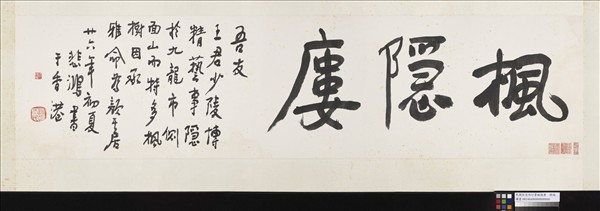 楓隱廔
吾友
王君少陵博
精藝事隱
於九龍市側
面山而特多楓
樹因承
雅命顏其居
廿六年初夏
悲鴻書
于香港